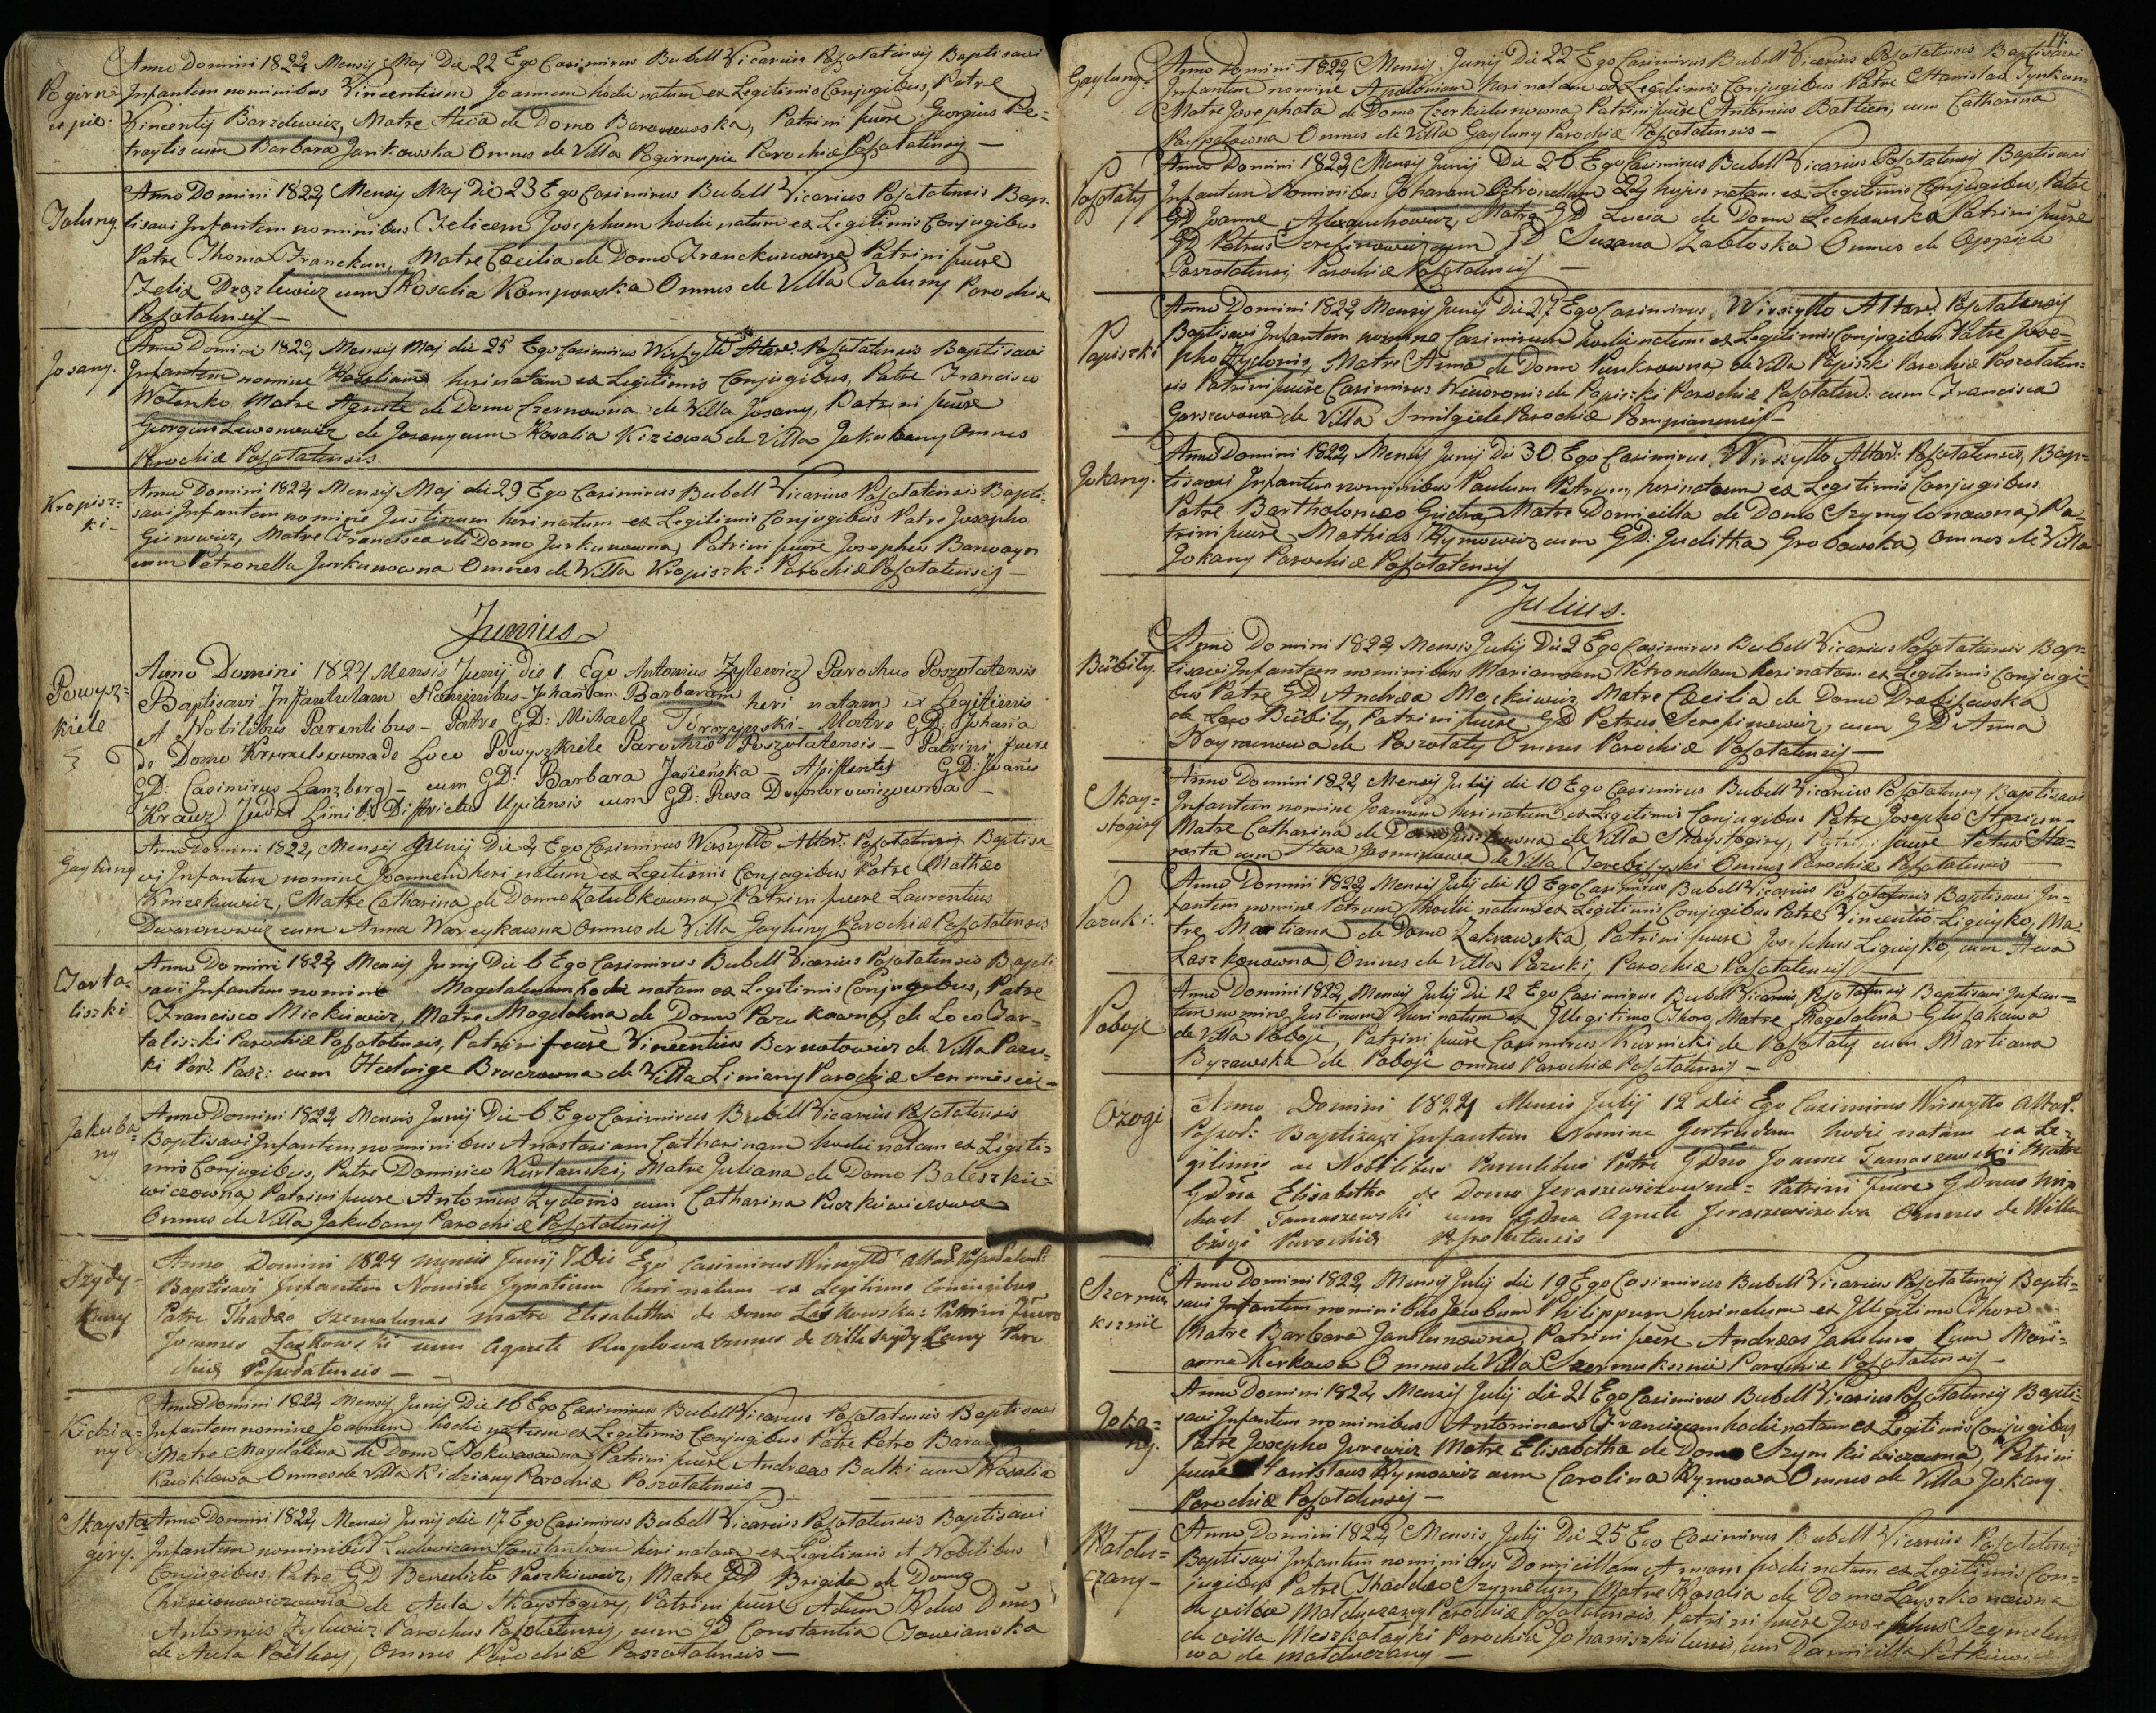 Pogirnu-
upie.
Anno Domini 1824 Mensis Maj Die 22 Ego Casimirus Bubell Vicarius Posotatensis Baptisavi
Infantem nominibus Vincentium Joannem hodie natum ex Legitimis Conjugibus, Patre
Vincentij Barzdewicz, Matre Ewa de Domo Baranowska, Patrini fuere Georgius Pe-
traytis cum Barbara Jankowska Omnes de Villa Pogirnupie Parochiæ Posotatensis —
Jaluny.
Anno Domini 1824 Mensis Maj Die 23 Ego Casimirus Bubell Vicarius Posotatensis Bap-
tisavi Infantem nominibus Felicem Josephum hodie natum ex Legitimis Conjugibus
Patre Thoma Franckun, Matre Cæcilia de Domo Franckunowna Patrini fuere
Felix Drozlewicz cum Rosalia Kompowska Omnes de Villa Jaluny Parochiæ
Posotatensis —
Josany.
Anno Domini 1824 Mensis Maj die 25 Ego Casimirus Wirszyłło Altar: Posotatensis Baptisavi
Infantem nomine heri natam ex Legitimis Conjugibus, Patre Francisco
Wołonko Matre Agneta de Domo Czernowna de Villa Josany, Patrini fuere
Georgius Lewonowicz de Josany cum Rosalia Kiziowa de Villa Jakubany Omnes
Parochiæ Posotatensis
Kropisz-
ki
Anno Domini 1824 Mensis Maj die 29 Ego Casimirus Bubell Vicarius Posotatensis Bapti-
savi Infantem nomine Justinum heri natum ex Legitimis Conjugibus Patre Josepho
Giniewicz, Matre Francisca de Domo Jurkunowna, Patrini fuere Josephus Barwayn
cum Petronella Jurkunowna Omnes de Villa Kropiszki Parochiæ Posotatensis —
Junius
Powysz-
kiele
Anno Domini 1824 Mensis Junij Die 1. Ego Antonius Zylewicz Parochus Poszotatensis
Baptisavi Infantulam Nominibus Johannam Barbaram heri natam ex Legitimis
et Nobilibus Parentibus — Patre GD: Michaele — Matre GD: Johanna
de Domo de Loco Powyszkiele Parochiæ Poszotatensis — Patrini fuere
GD: Casimirus Lanzberg — cum GD: Barbara Jasieńska — Assistentes GD: Joanes
Krauz Judex Districtus Upitensis cum GD: Rosa —
Gayluny
Anno Domini 1824 Mensis Junij Die 2 Ego Casimirus Wirszyłło Altar: Posotatensis Baptisa-
vi Infantem nomine Joannem heri natum ex Legitimis Conjugibus Patre Mathæo
Kniżekiewicz, Matre Catharina de Domo Zatubkowna, Patrini fuere Laurentius
Dworonowicz cum Anna Wareykowna Omnes de Villa Gayluny Parochiæ Posotatensis
Jarta-
liszki
Anno Domini 1824 Mensis Junij Die 6 Ego Casimirus Bubell Vicarius Posotatensis Bapti-
savi Infantem nomine Magdalenam hodie natam ex Legitimis Conjugibus, Patre
Francisco Mickiewicz, Matre Magdalena de Domo Pazukowna, de Loco Jar-
taliszki Parochiæ Posotatensis, Patrini fuere Vincentius Bernatowicz de Villa Pazu-
ki Par: Posz: cum Hedvige Bruczowna de Villa Limiany Parochiæ
Jakuba-
ny
Anno Domini 1824 Mensis Junij Die 6 Ego Casimirus Bubell Vicarius Posotatensis
Baptisavi Infantem nominibus Anastasiam Catharinam hodie natam ex Legiti-
mis Conjugibus, Patre Dominico Kurlanski, Matre Juliana de Domo Baleszkie-
wiczowna, Patrini fuere Antonius Zydonis cum Catharina Puczkiewiczowa
Omnes de Villa Jakubany Parochiæ Posotatensis
Szydy-
kany
Anno Domini 1824 mensis Junij 7 Die Ego Casimirus Wirszyłło Altar:
Baptisavi Infantem Nomine Ignatium heri natum ex Legitimis Conjugibus
Patre Thadeo Szematunas Matre Elisabetha de Domo Laskowska: Patrini fuere
Joannes Laskowski cum Agnete Ruplowa Omnes de Villa Szydykany Paro
chiæ Poszotatensis —
Kidzia-
ny
Anno Domini 1824 Mensis Junij Die 16 Ego Casimirus Bubell Vicarius Posotatensis Baptisavi
Infantem nomine Joannem hodie natum ex Legitimis Conjugibus Patre Petro
Matre Magdalena de Domo Patrini fuere Andreas Balki cum Rosalia
Omnes de Villa Kidziany Parochiæ Poszotatensis —
Skaysto-
giry.
Anno Domini 1824 Mensis Junij die 17 Ego Casimirus Bubell Vicarius Posotatensis Baptisavi
Infantem nominibus Ludovicam Constantiam heri natam ex Legitimis et Nobilibus
Conjugibus, Patre GD Benedicto Paszkiewicz, Matre GD Brigida de Domo
de Aula Skaystogiry, Patrini fuere Dnus
Antonius Zylewicz Parochus Posotatensis, cum GD Constantia
de Aula Omnes Parochiæ Poszotatensis —
17.
Gayluny.
Anno Domini 1824 Mensis Junij Die 22 Ego Casimirus Bubell Vicarius Posotatensis Baptisavi
Infantem nomine Apoloniam heri natam ex Legitimis Conjugibus Patre Stanislao Jynkun
Matre Josephata de Domo Patrini fuere Antonius cum Catharina
Omnes de Villa Gayluny Parochiæ Posotatensis —
Posotaty
Anno Domini 1824 Mensis Junij Die 26 Ego Casimirus Bubell Vicarius Posotatensis Baptisavi
Infantem Nominibus Johannam Petronellam 24 hujus natam ex Legitimis Conjugibus, Patre
GD Joanne Matre GD Lucia de Domo Lechowska Patrini fuere
GD Petrus Serefinowicz cum GD Susana Zabłoska Omnes de Oppido
Poszotatensi Parochiæ Posotatensis —
Papiszki
Anno Domini 1824 Mensis Junij Die 27 Ego Casimirus Wirszyłło Altar: Posotatensis
Baptisavi Infantem nomine Casimirum hodie natum ex Legitimis Conjugibus Patre Jose-
pho Zydonis, Matre Anna de Domo Punkrowna de Villa Papiszki Parochiæ Poszotaten-
sis Patrini fuere Casimirus de Papiszki Parochiæ Posotaten: cum Francisca
de Villa Smilgiele Parochiæ Pompianensis —
Jokany.
Anno Domini 1824 Mensis Junij Die 30 Ego Casimirus Wirszyłło Altar: Posotatensis, Bap-
tisavi Infantem nominibus Paulum Petrum, heri natum ex Legitimis Conjugibus
Patre Bartholomæo Giedra, Matre Domicilla de Domo Szymylonowna, Pa-
trini fuere Mathias Rymowicz cum GD: Juditha Grobowska, Omnes de Villa
Jokany Parochiæ Posotatensis
Julius.
Bubity.
Anno Domini 1824 Mensis Julij Die 2 Ego Casimirus Bubell Vicarius Posotatensis Bap-
tisavi Infantem nominibus Mariannam Petronellam heri natam ex Legitimis Conjugi-
bus Patre GD Andrea Mackiewicz Matre Cæcilia de Domo
de Loco Bubity, Patrini fuere GD Petrus Serefinowicz, cum GD Anna
de Poszotaty Omnes Parochiæ Posotatensis —
Skay-
stogiry
Anno Domini 1824 Mensis Julij die 10 Ego Casimirus Bubell Vicarius Posotatensis Baptisavi
Infantem nomine Joannem heri natum ex Legitimis Conjugibus Patre Josepho
Matre Catharina de Domo de Villa Skaystogiry, Patrini fuere Petrus Sta-
rosta cum Ewa de Villa Omnes Parochiæ Posotatensis
Pazuki.
Anno Domini 1824 Mensis Julij die 10 Ego Casimirus Bubell Vicarius Posotatensis Baptisavi In-
fantem nomine Petrum hodie natum ex Legitimis Conjugibus Patre Vincentio Ligieyko, Ma-
tre Martiana de Domo Zakrewska, Patrini fuere Josephus Ligieyko, cum Ewa
Laszkonowna, Omnes de Villa Pazuki, Parochiæ Posotatensis —
Poboje
Anno Domini 1824 Mensis Julij Die 12 Ego Casimirus Bubell Vicarius Posotatensis Baptisavi Infan-
tem nomine Justinum heri natum ex Illegitimo Thoro, Matre Magdalena
de Villa Poboje, Patrini fuere Casimirus de Posotaty cum Martiana
de Poboje omnes Parochiæ Posotatensis —
Ożogi
Anno Domini 1824 Mensis Julij 12 Die Ego Casimirus Wirszyłło Altar:
Baptizavi Infantem Nomine Gertrudam hodie natam ex Le-
gitimis ac Nobilibus Parentibus Patre GDno Joanne Tamaszewski Matre
GDna Elisabetha de Domo Jeraszewiczowna = Patrini fuere GDnus Mi-
chael Tamaszewski cum GDna Agnete Jeraszewiczowa Omnes de Villa
Ożogi Parochiæ
Szermu-
ksznie
Anno Domini 1824 Mensis Julij die 19 Ego Casimirus Bubell Vicarius Posotatensis Bapti-
savi Infantem nominibus Jacobum Philippum heri natum ex Illegitimo Thoro
Matre Barbara Patrini fuere Andreas cum Mari-
anna Kirkowa Omnes de Villa Szermuksznie Parochiæ Posotatensis —
Joka-
ny.
Anno Domini 1824 Mensis Julij die 21 Ego Casimirus Bubell Vicarius Posotatensis Bapti-
savi Infantem nominibus Antoninam Franciscam hodie natam ex Legitimis Conjugibus
Patre Josepho Jurewicz Matre Elisabetha de Domo Szymkiewiczowna, Patrini
fuere Stanislaus Rymowicz cum Carolina Rymowa Omnes de Villa Jokany
Parochiæ Posotatensis —
Matdu-
czany —
Anno Domini 1824 Mensis Julij Die 25 Ego Casimirus Bubell Vicarius Posotatensis
Baptisavi Infantem nominibus Domicillam Annam hodie natam ex Legitimis Con-
jugibus Patre Thaddeo Szymelun, Matre Rosalia de Domo Layszkonowna
de villa Matduczany Parochiæ Posotatensis Patrini fuere Josephus Szymelun
de villa Parochiæ cum Domicilla
wa de Matduczany —